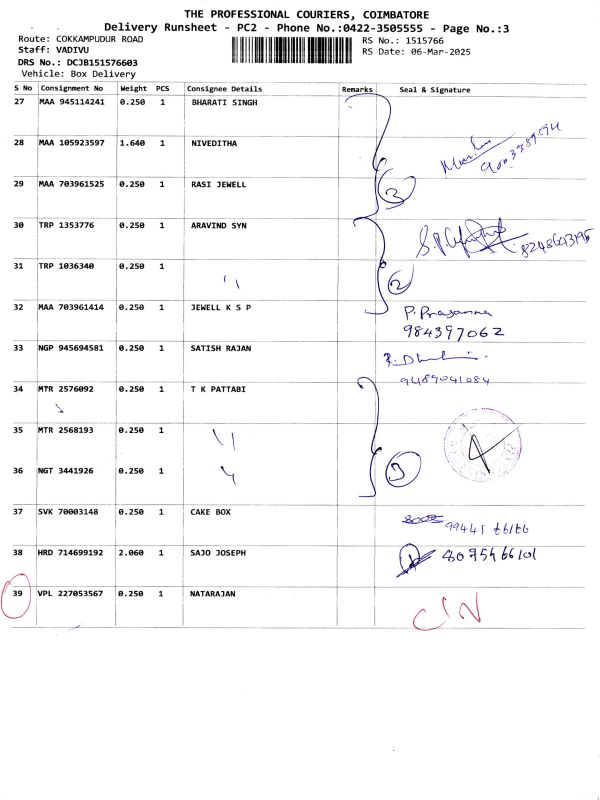 THE PROFESSIONAL COURIERS, COIMBATORE
Delivery Runsheet - PC2 - Phone No.:0422-3505555 - Page No.:3
Route: COKKAMPUDUR ROAD
RS No.: 1515766
Staff: VADIVU
RS Date: 06-Mar-2025
DRS No.: DCJB151576603
Vehicle: Box Delivery
S No Consignment No Weight PCS Consignee Details Remarks Seal & Signature
27 MAA 945114241 0.250 1 BHARATI SINGH
28 MAA 105923597 1.640 1 NIVEDITHA
29 MAA 703961525 0.250 1 RASI JEWELL
3
30 TRP 1353776 0.250 1 ARAVIND SYN
31 TRP 1036340 0.250 1 ''
2
32 MAA 703961414 0.250 1 JEWELL K S P P. Prasanna
984397062
33 NGP 945694581 0.250 1 SATISH RAJAN
9489041084
34 MTR 2576092 0.250 1 T K PATTABI
35 MTR 2568193 0.250 1 ''
36 NGT 3441926 0.250 1 ''
3
37 SVK 70003148 0.250 1 CAKE BOX
38 HRD 714699192 2.060 1 SAJO JOSEPH
39 VPL 227053567 0.250 1 NATARAJAN
C/N